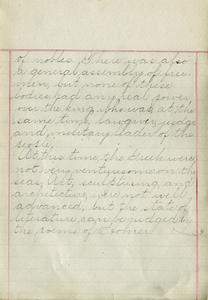 of nobles. There was also
a general assembly of free
men, but none of these
bodies had any real power
over the king who was at the
same time, lawgiver, judge
and military leader of the
people.
At this time the Greeks were
not very venturesome on the
seas. Art, sculpturing and
architecture were not well
advanced, but the state of
literature can be judged by
the poems of Homer.